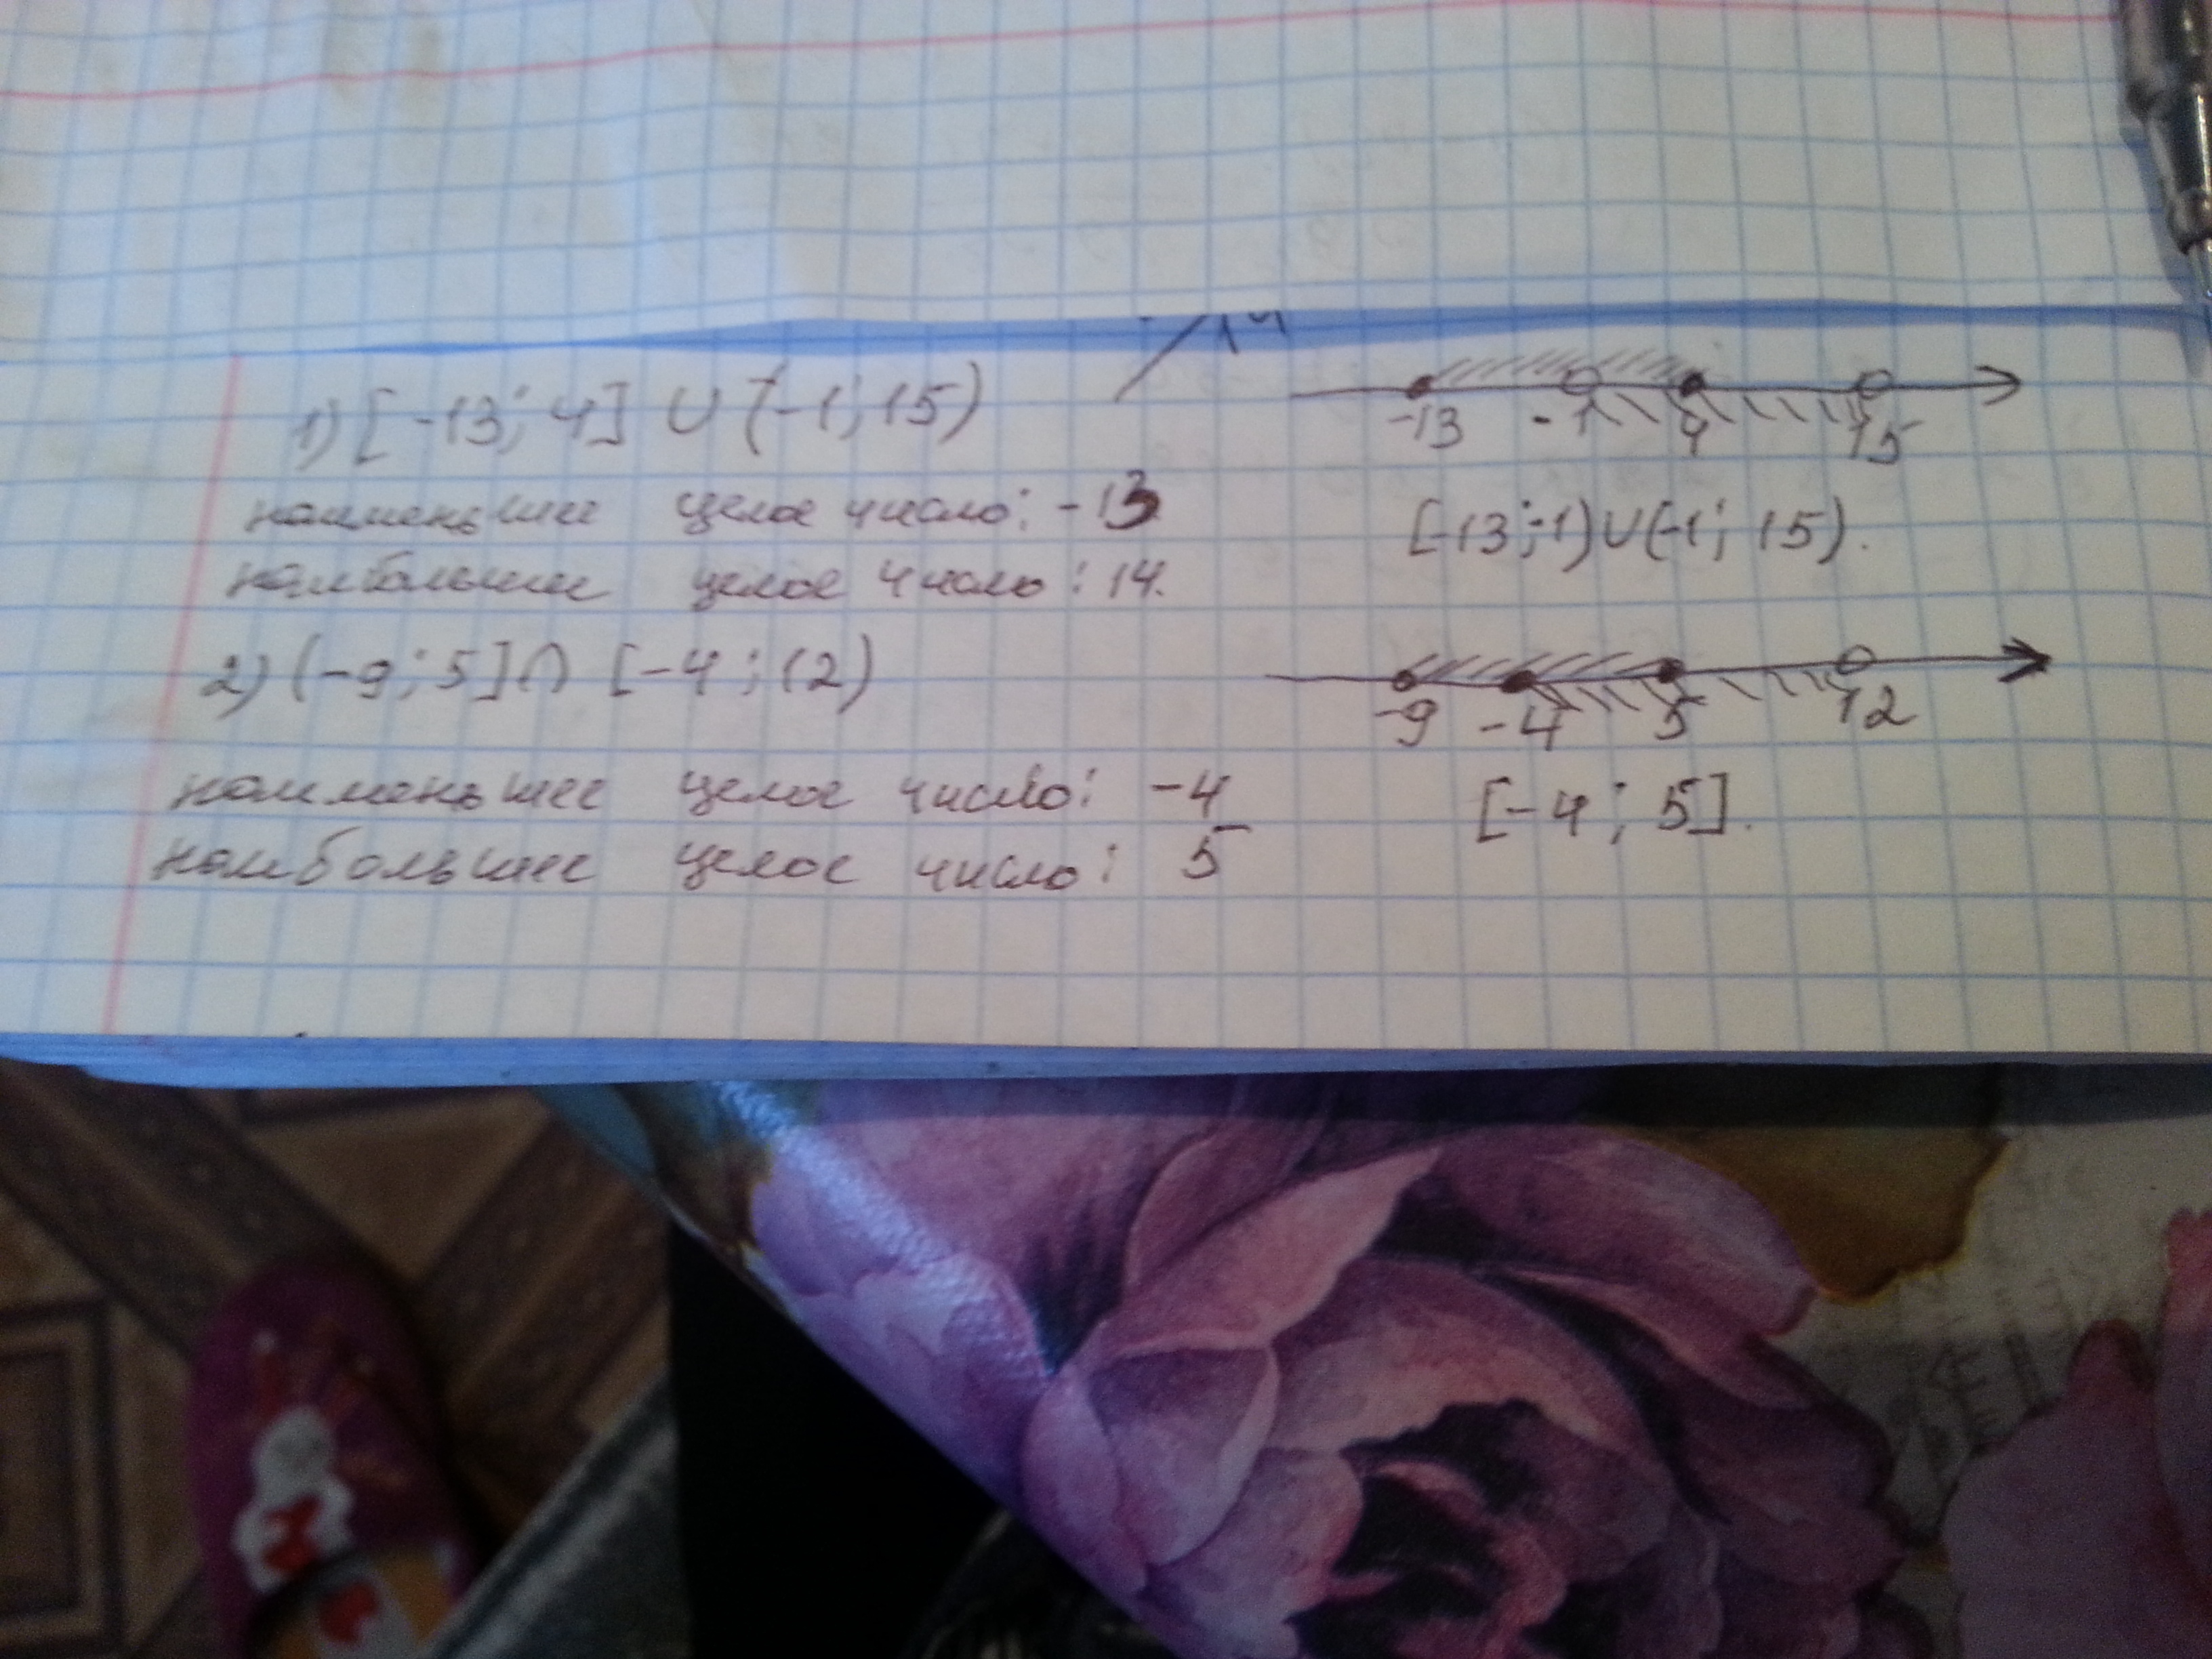 1) [-13; 4] ∪ (-1; 15)
-13 -1 4 15
наименьшее целое число: -13
[-13;-1)∪(-1; 15).
наибольшее целое число: 14.
2) (-9; 5] ∩ [-4; 12)
-9 -4 5 12
наименьшее целое число: -4
[-4; 5].
наибольшее целое число: 5